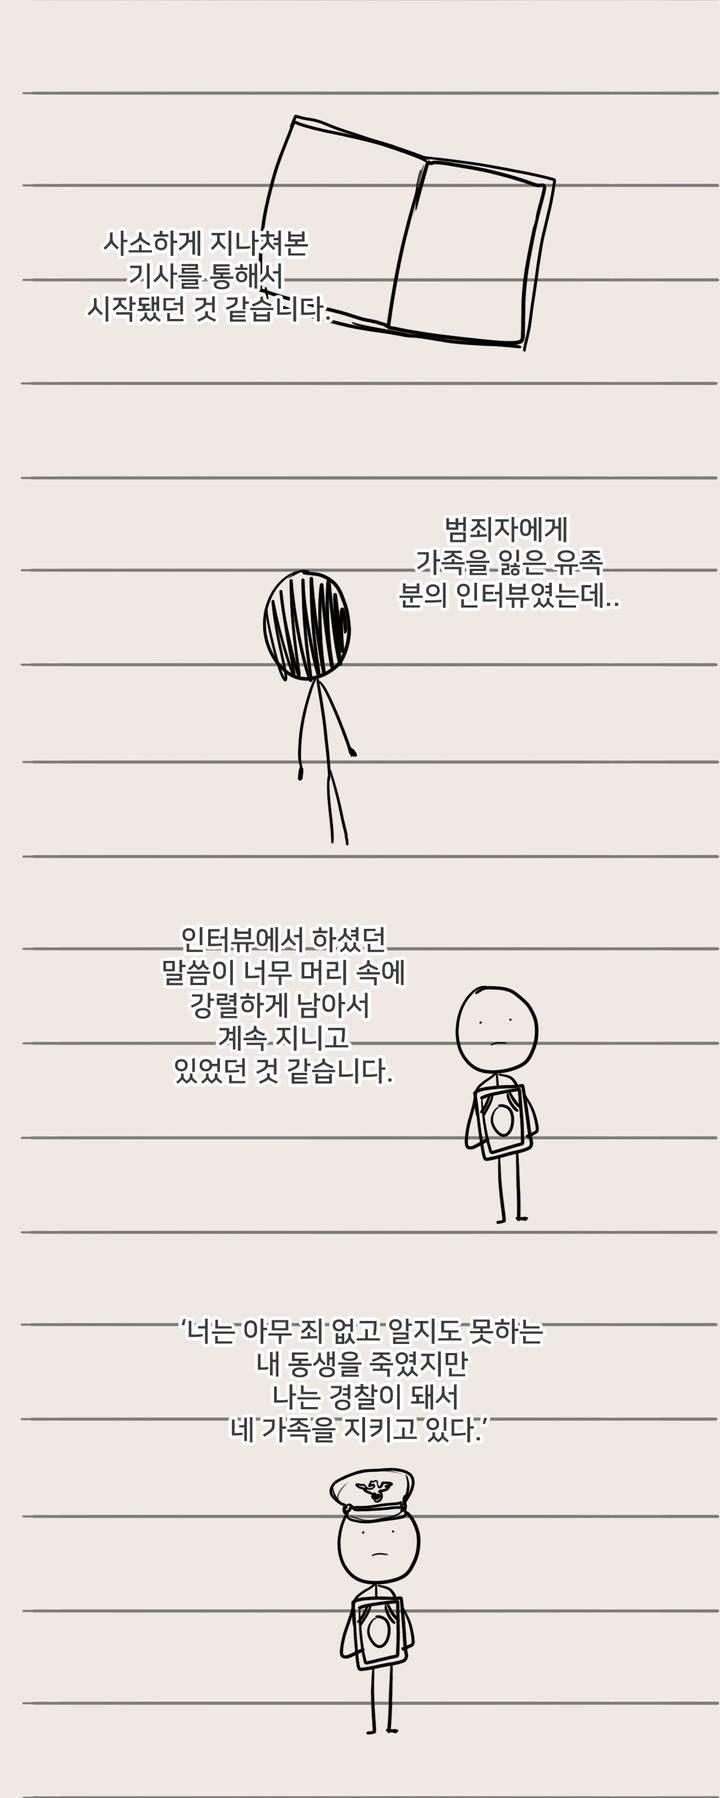 사소하게 지나쳐본
기사를 통해서
시작됐던 것 같습니다.
범죄자에게
가족을 잃은 유족
분의 인터뷰였는데..
인터뷰에서 하셨던
말씀이 너무 머리 속에
강렬하게 남아서
계속 지니고
있었던 것 같습니다.
‘너는 아무 죄 없고 알지도 못하는
내 동생을 죽였지만
나는 경찰이 돼서
네 가족을 지키고 있다.’